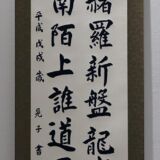 赭羅新盤龍
南陌上誰道不
平成戊戌歳 子書